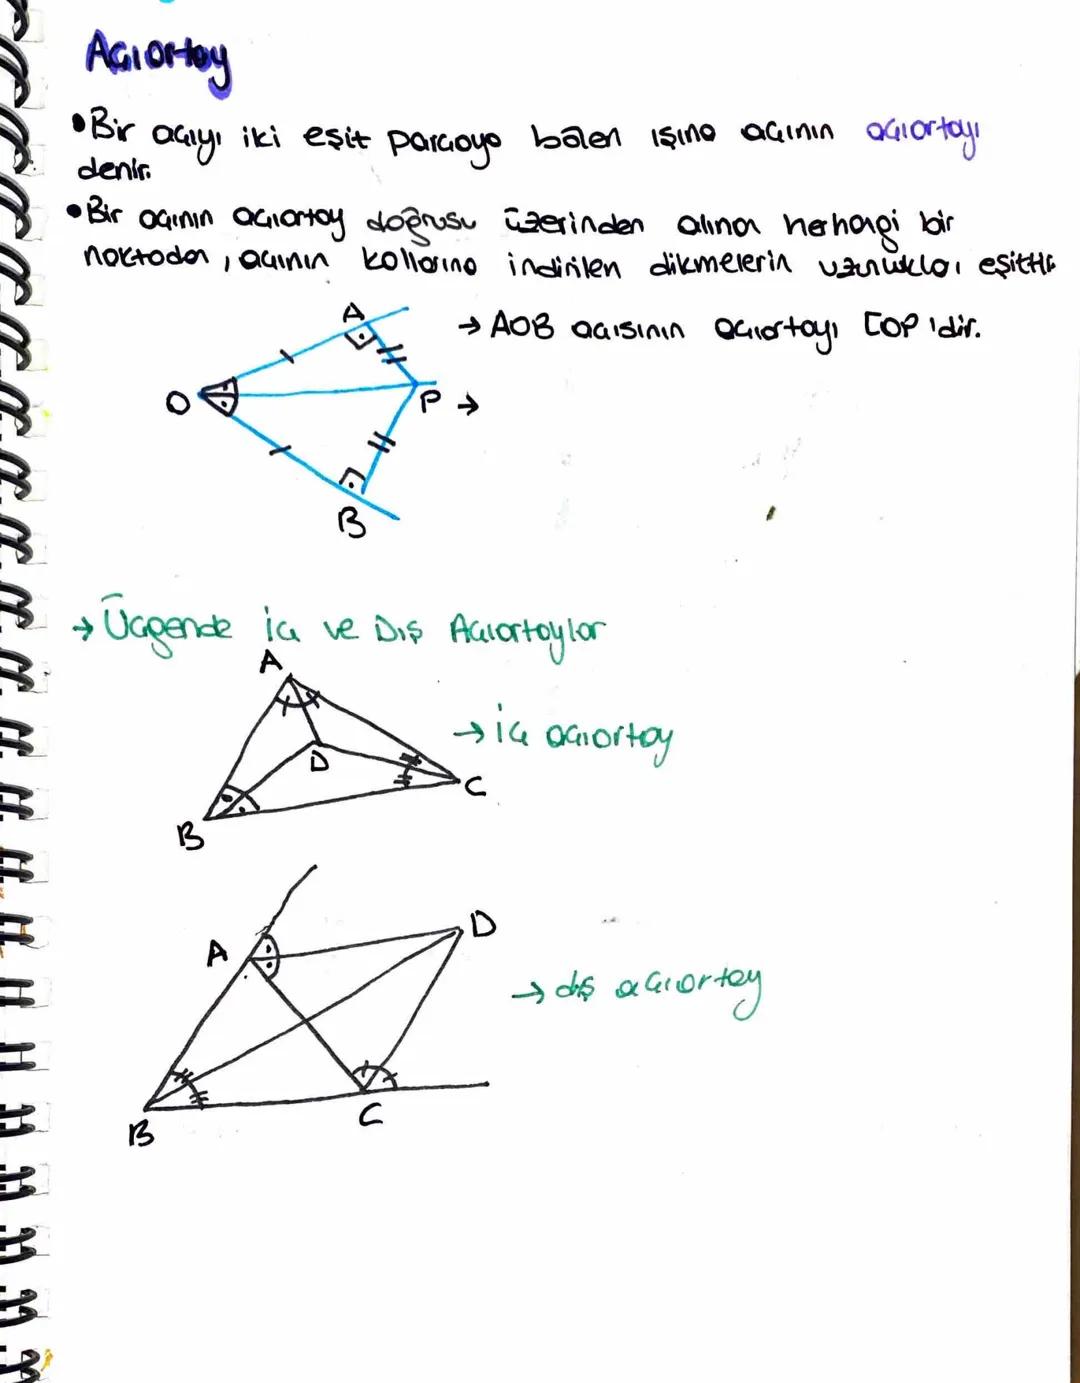 Açıortay
•Bir açıyı iki eşit parçaya bölen ışına açının açıortayı
denir.
•Bir açının açıortay doğrusu üzerinden alınan herhangi bir
noktadan, açının kollarına indirilen dikmelerin uzunlukları eşittir.
A
→ AOB açısının açıortayı [OP 'dir.
O
P →
B
→ Üçgende İç ve Dış Açıortaylar
A
→ İç açıortay
D
C
B
D
A
→ dış açıortay
C
B